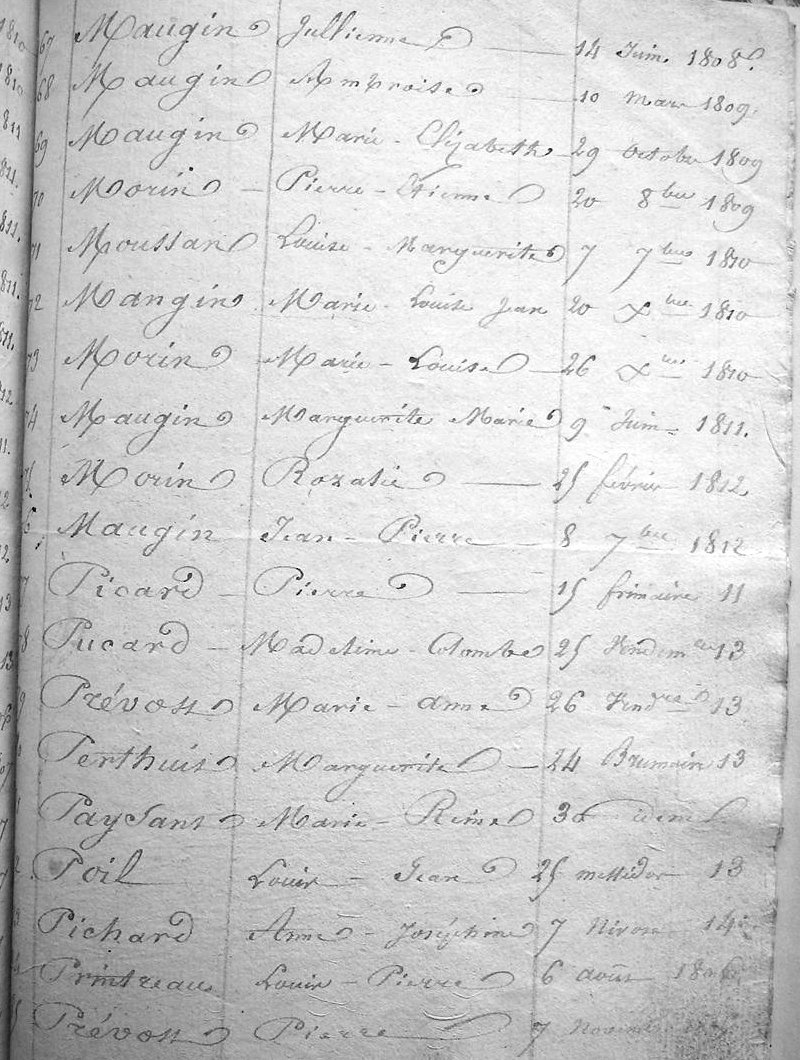 67 Maugin Jullienne 14 Juin 1808.
68 Maugin Ambroise 10 mars 1809.
69 Maugin Marie - Elizabeth 29 octobre 1809
70 Morin - Pierre - Etienne 20 8bre 1809
71 Moussard Louise - Marguerite 7 7bre 1810
72 Mangin Marie Louise Jean 20 Xbre 1810
73 Morin Marie - Louise 26 Xbre 1810
74 Maugin Marguerite Marie 9 Juin 1811.
Morin Rozalie 25 février 1812
6 Maugin Jean - Pierre 8 7bre 1812
7 Picard - Pierre 15 frimaire 11
8 Pucard - Madeleine - Colombe 25 Vendemre 13
9 Prévost Marie - anne 26 Vendre 13
Perthuis Marguerite 24 Brumaire 13
Paysant Marie - Reine 30 idem
Poil Louis - Jean 25 messidor 13
Pichard Anne - Joséphine 7 Nivose 14
Printzeau Louis - Pierre 6 août
Prévost Pierre 7